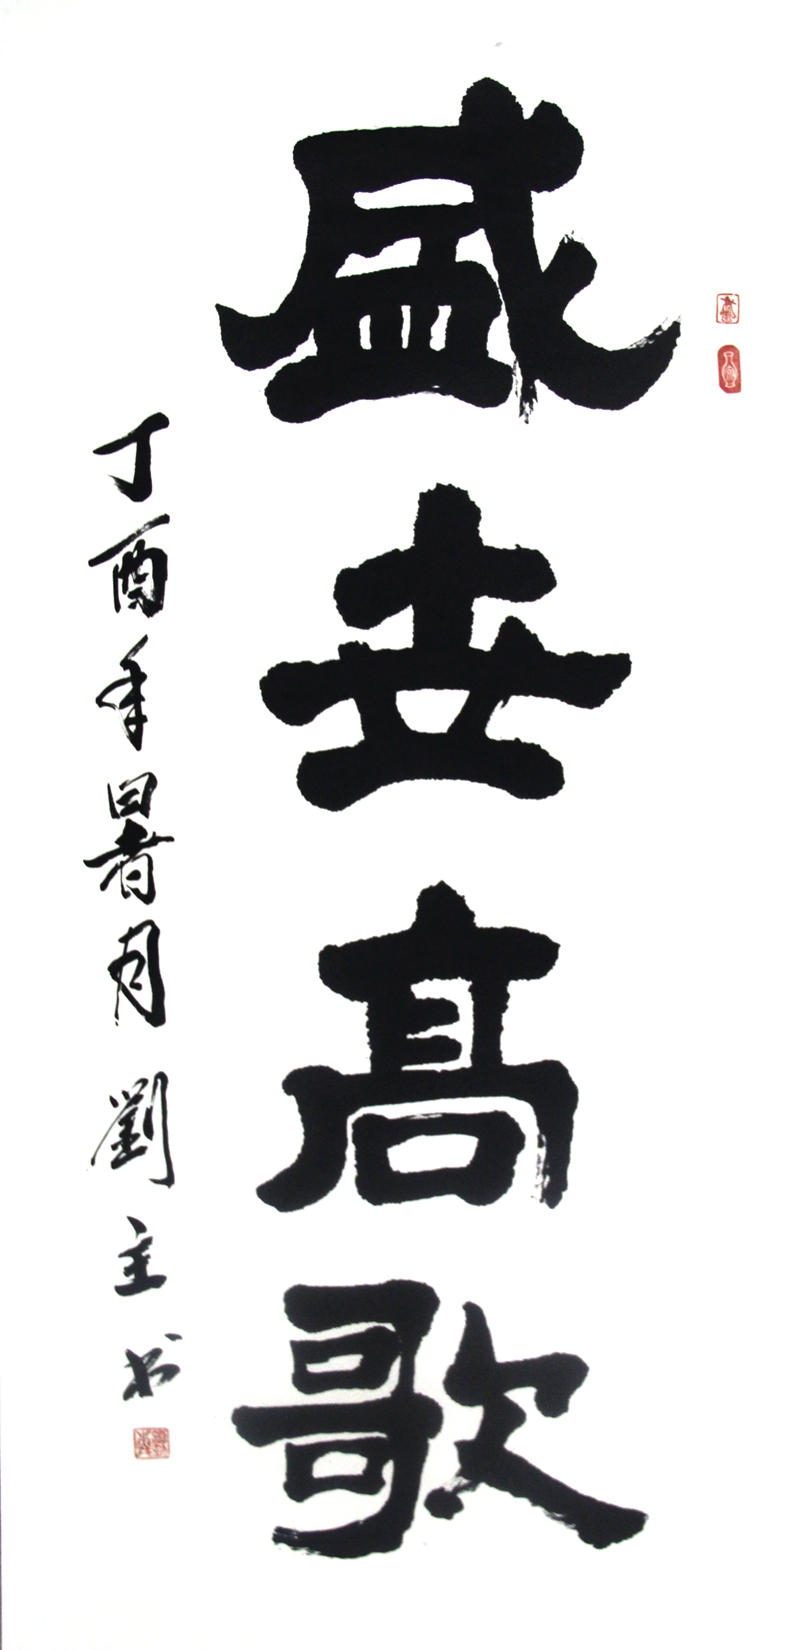 盛世髙歌
丁酉年暑月劉主书